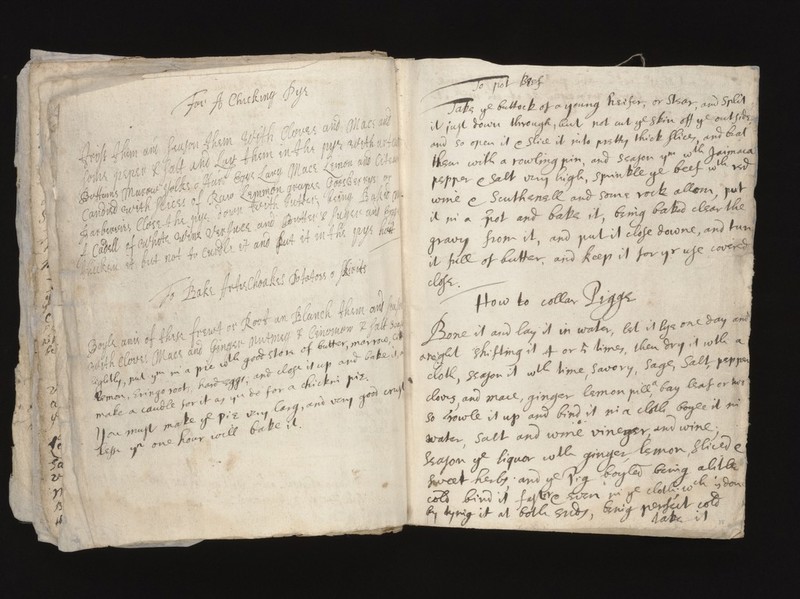 For A Chicking Pye
Truss them and Season them with Cloves and Mace and
pepper & Salt and Lay them in the pye with
Marrow Yolks of Hard Eggs Large Mace Lemon and
with Slices of Raw Lemmon grapes Gooseberys or
Barbaries Close the pye down with butter, being Baked
A Caudle of White Wine Verjuice and Butter & Sugar and
thicken it but not to Curdle it and put it in the pays hott
To Bake Artechoakes Potatoes or Skirits
Boyle anij of these frewt or Root an Blanch them and
with Cloves Mace and Ginger Nutmeg & Cinomom & Salt
lightly, put ym in a pie with good store of butter, marrow,
lemon, Eringo root, hard eggs, and close it up and bake it,
make a caudle for it as yu do for a chickin pie.
You must make ye pie very larg, and very good crust
less yn one hour will bake it
To pot Beef
Take ye buttock of a young heifer, or Stear, and Split
it just down through, but not cut ye skin off ye outside,
and so open it & slice it into pretty thick slices, and beat
them with a rowling pin, and season ym wth Jamaica
pepper & salt very high, sprinkle ye beef wth red
wine & Scuthenell and some rock allom, put
it in a pot and bake it, being baked clear the
gravy from it, and put it close downe, and turn
it full of butter, and keep it for yr use covered
close.
How to collar Pigge
Bone it and lay it in water, let it lye one day and
anight shifting it 4 or 5 times, then dry it with a
cloth, season it wth time, savory, sage, salt, pepper
cloves, and mace, ginger lemon pill, bay leaf or two
so rowle it up and bind it in a cloth, boyle it in
water, salt and wine vineger, and wine,
season ye liquor wth ginger lemon, sliced &
sweet herbs, and ye Pig boyled being alitle
cold bind it faster even in ye cloth wch is done
by tying it at both ends, being perfect cold
take it